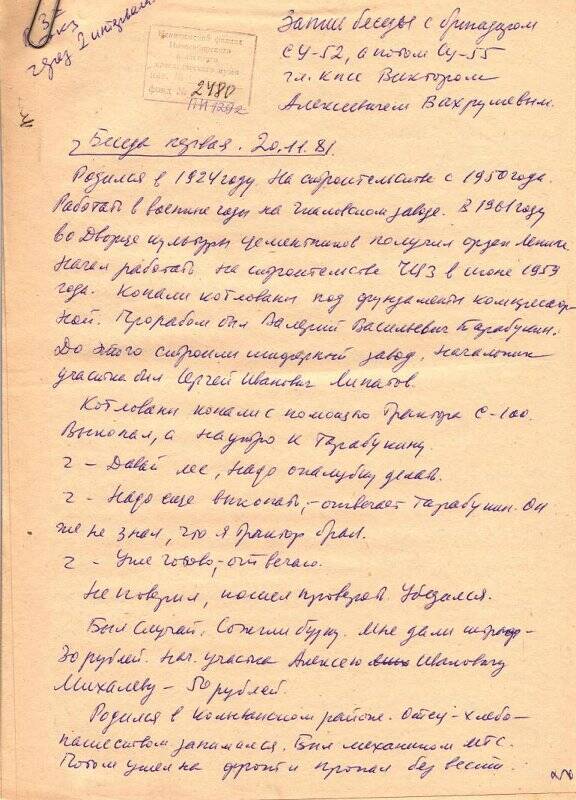 3 экз
через 2 интервала
Искитимский филиал
Новосибирского
областного
краеведческого музея
фонд № 2480
Запись беседы с бригадиром
СУ-52, а потом СУ-55
гл. КПСС Виктором
Алексеевичем Вахрушевым.
Беседа первая. 20.11.81.
Родился в 1924 году. На строительстве с 1950 года.
Работать в военные годы на заводе. В 1961 году
во Дворце культуры цементников получил орден Ленина.
Начал работать на строительстве ЧЦЗ в июне 1959
года. Копали котлованы под фундаменты компрессор-
ной. Прорабом был Валерий Васильевич Тарабукин.
До этого строили шиферный завод, начальник
участка был Сергей Иванович Липатов.
Котлованы копали с помощью трактора С-100.
Выкопал, а наутро к Тарабукину
– Давай лес, надо опалубку делать.
– Надо еще выкопать, – отвечает Тарабукин. Он
же не знал, что я трактор брал.
– Уже готово, – отвечаю.
Не поверил, пошел проверять. Убедился.
Был случай. Сожгли бурку. Мне дали штраф –
30 рублей. Нач. участка Алексею Ивановичу
Михалеву – 50 рублей.
Родился в Колыванском районе. Отец – хлебо-
пашеством занимался. Был механиком МТС.
Потом ушел на фронт и пропал без вести.